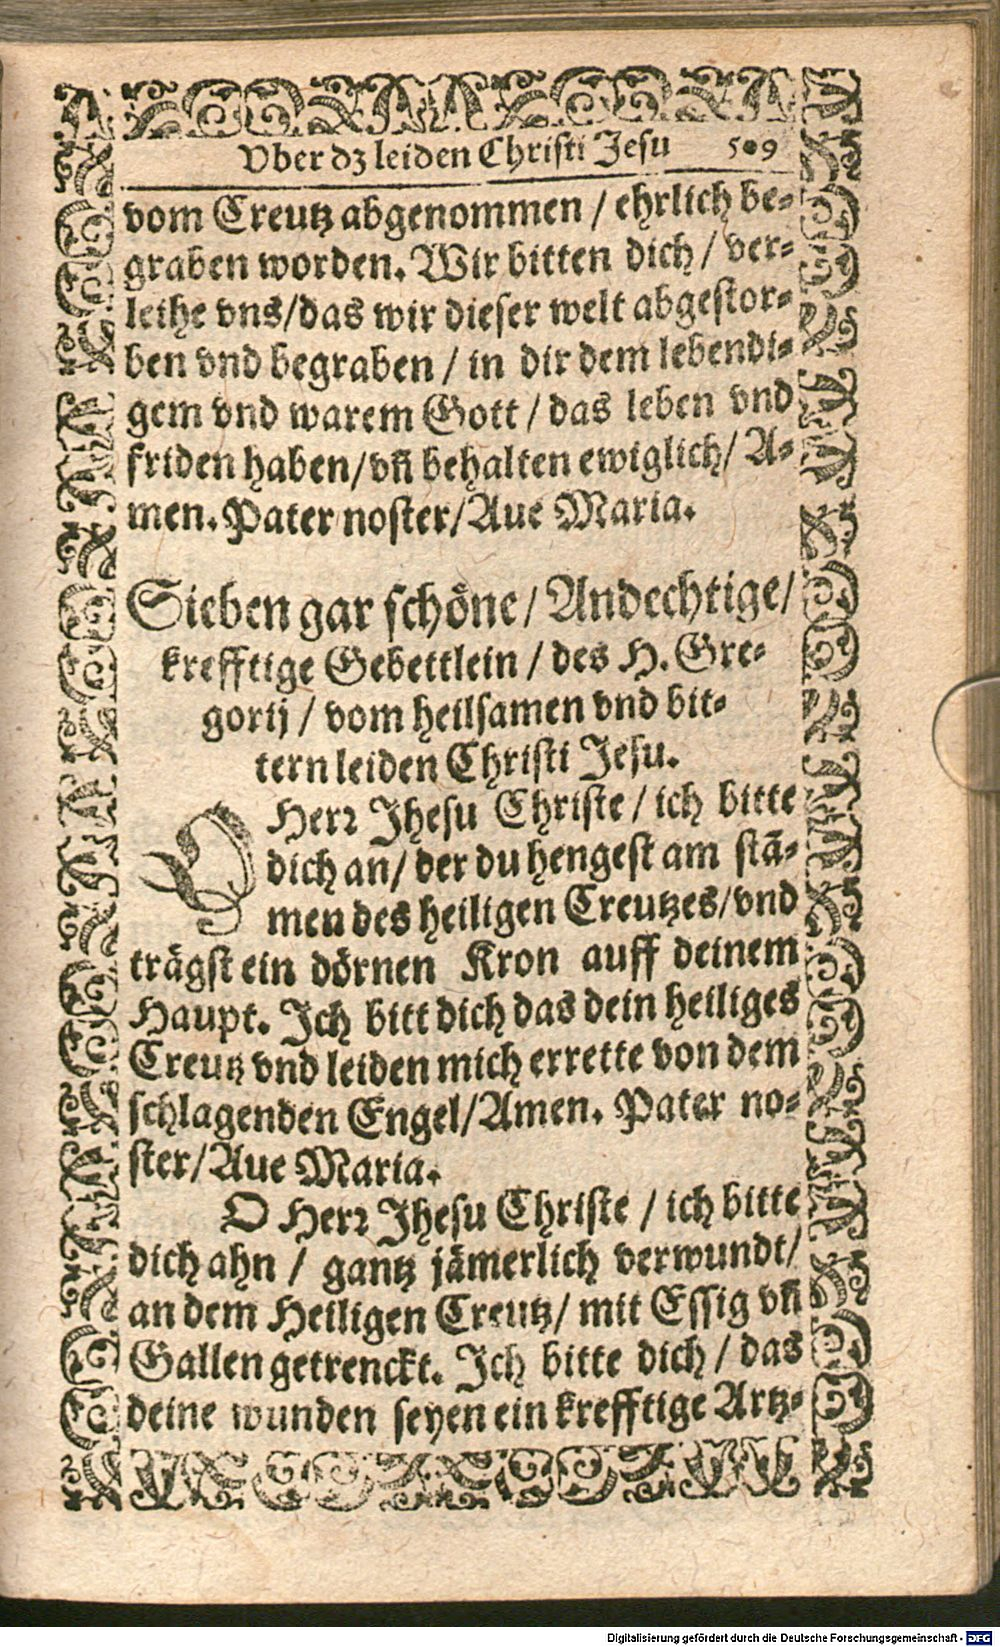 Vber dz leiden Christi Jesu 509
vom Creutz abgenommen / ehrlich be-
graben worden. Wir bitten dich / ver-
leihe vns/das wir dieser welt abgestor-
ben vnd begraben / in dir dem lebendi-
gem vnd warem Gott / das leben vnd
friden haben/vñ behalten ewiglich/ A-
men. Pater noster/Aue Maria.
Sieben gar schöne / Andechtige/
krefftige Gebettlein / des H. Gre-
gorij / vom heilsamen vnd bit-
tern leiden Christi Jesu.
O Herr Jhesu Christe / ich bitte
dich an/ der du hengest am stä-
men des heiligen Creutzes/vnd
trägst ein dörnen Kron auff deinem
Haupt. Ich bitt dich das dein heiliges
Creutz vnd leiden mich errette von dem
schlagenden Engel/Amen. Pater no-
ster/Aue Maria.
O Herr Jhesu Christe / ich bitte
dich ahn / gantz jämerlich verwundt/
an dem Heiligen Creutz/ mit Essig vñ
Gallen getrenckt. Ich bitte dich / das
deine wunden seyen ein krefftige Artz-
Digitalisierung gefördert durch die Deutsche Forschungsgemeinschaft - DFG